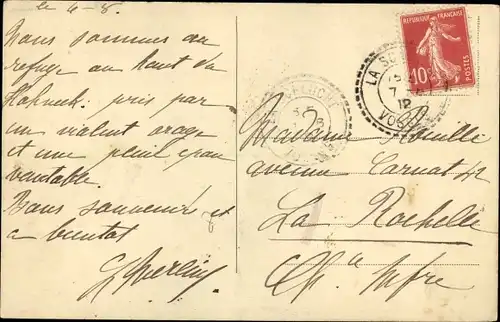 le 4-8.
Nous sommes au
refuge au haut du
Hohneck. pris par
un violent orage
et une pluie épou
vantable.
Bons souvenirs et
a bientot
RÉPUBLIQUE FRANÇAISE
10c
POSTES
LA
7
12
VOS
Madame
avenue Carnot 42
La Rochelle
Ch.te Infre